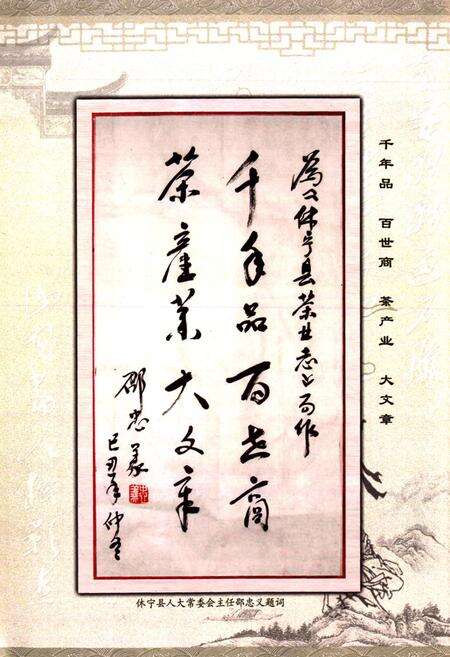 为《休宁县茶业志》而作
千年品百世商
茶産業大文章
邵忠义
己丑年仲冬
千年品 百世商 茶产业 大文章
休宁县人大常委会主任邵忠义题词